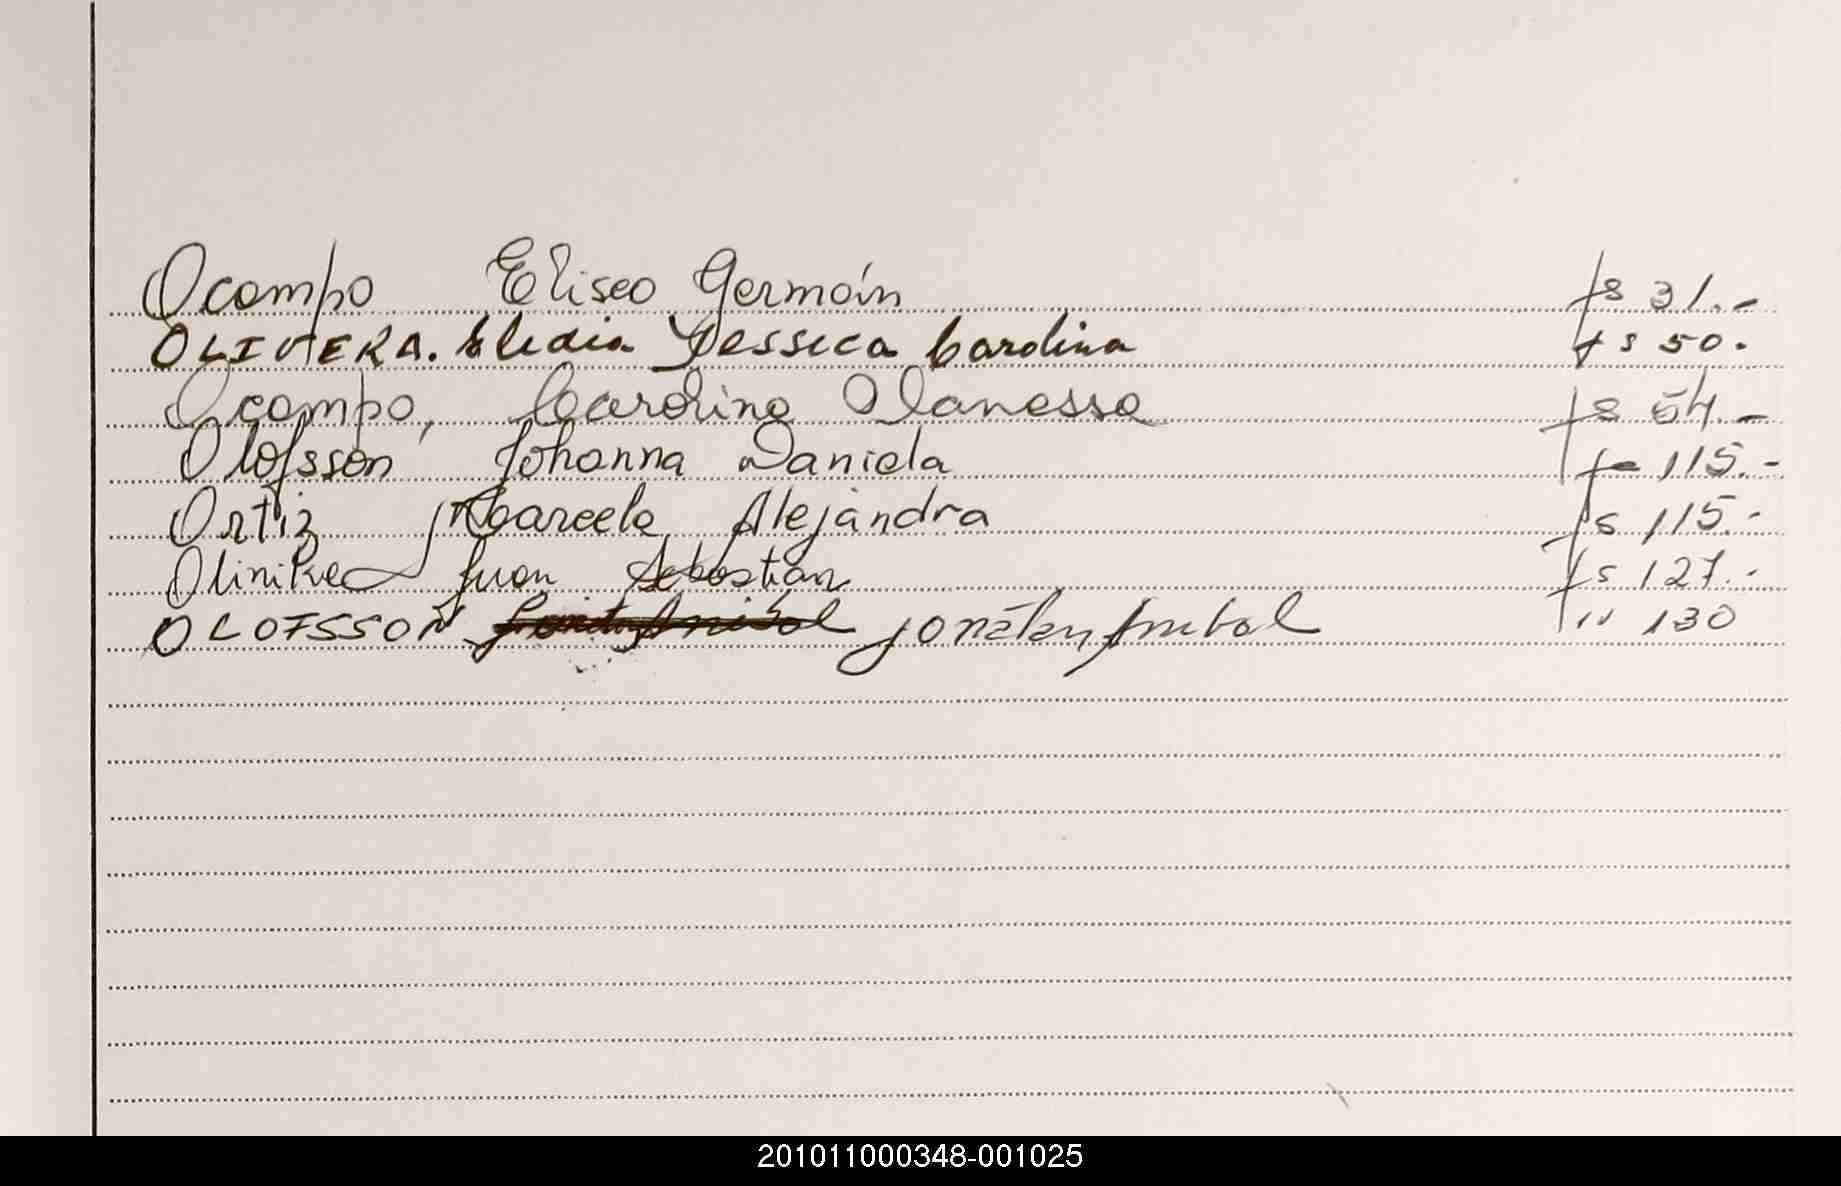 Ocampo Eliseo Germán fs 31.-
OLIVERA. Elidia Yessica Carolina fs 50.
Ocampo, Carolina Vanessa fs 54.-
Olofsson Johanna Daniela f- 115.-
Ortiz Marcela Alejandra fs 115.-
Juan Sebastian fs 127.-
OLOFSSON Jonatan Anibal " 130
201011000348-001025